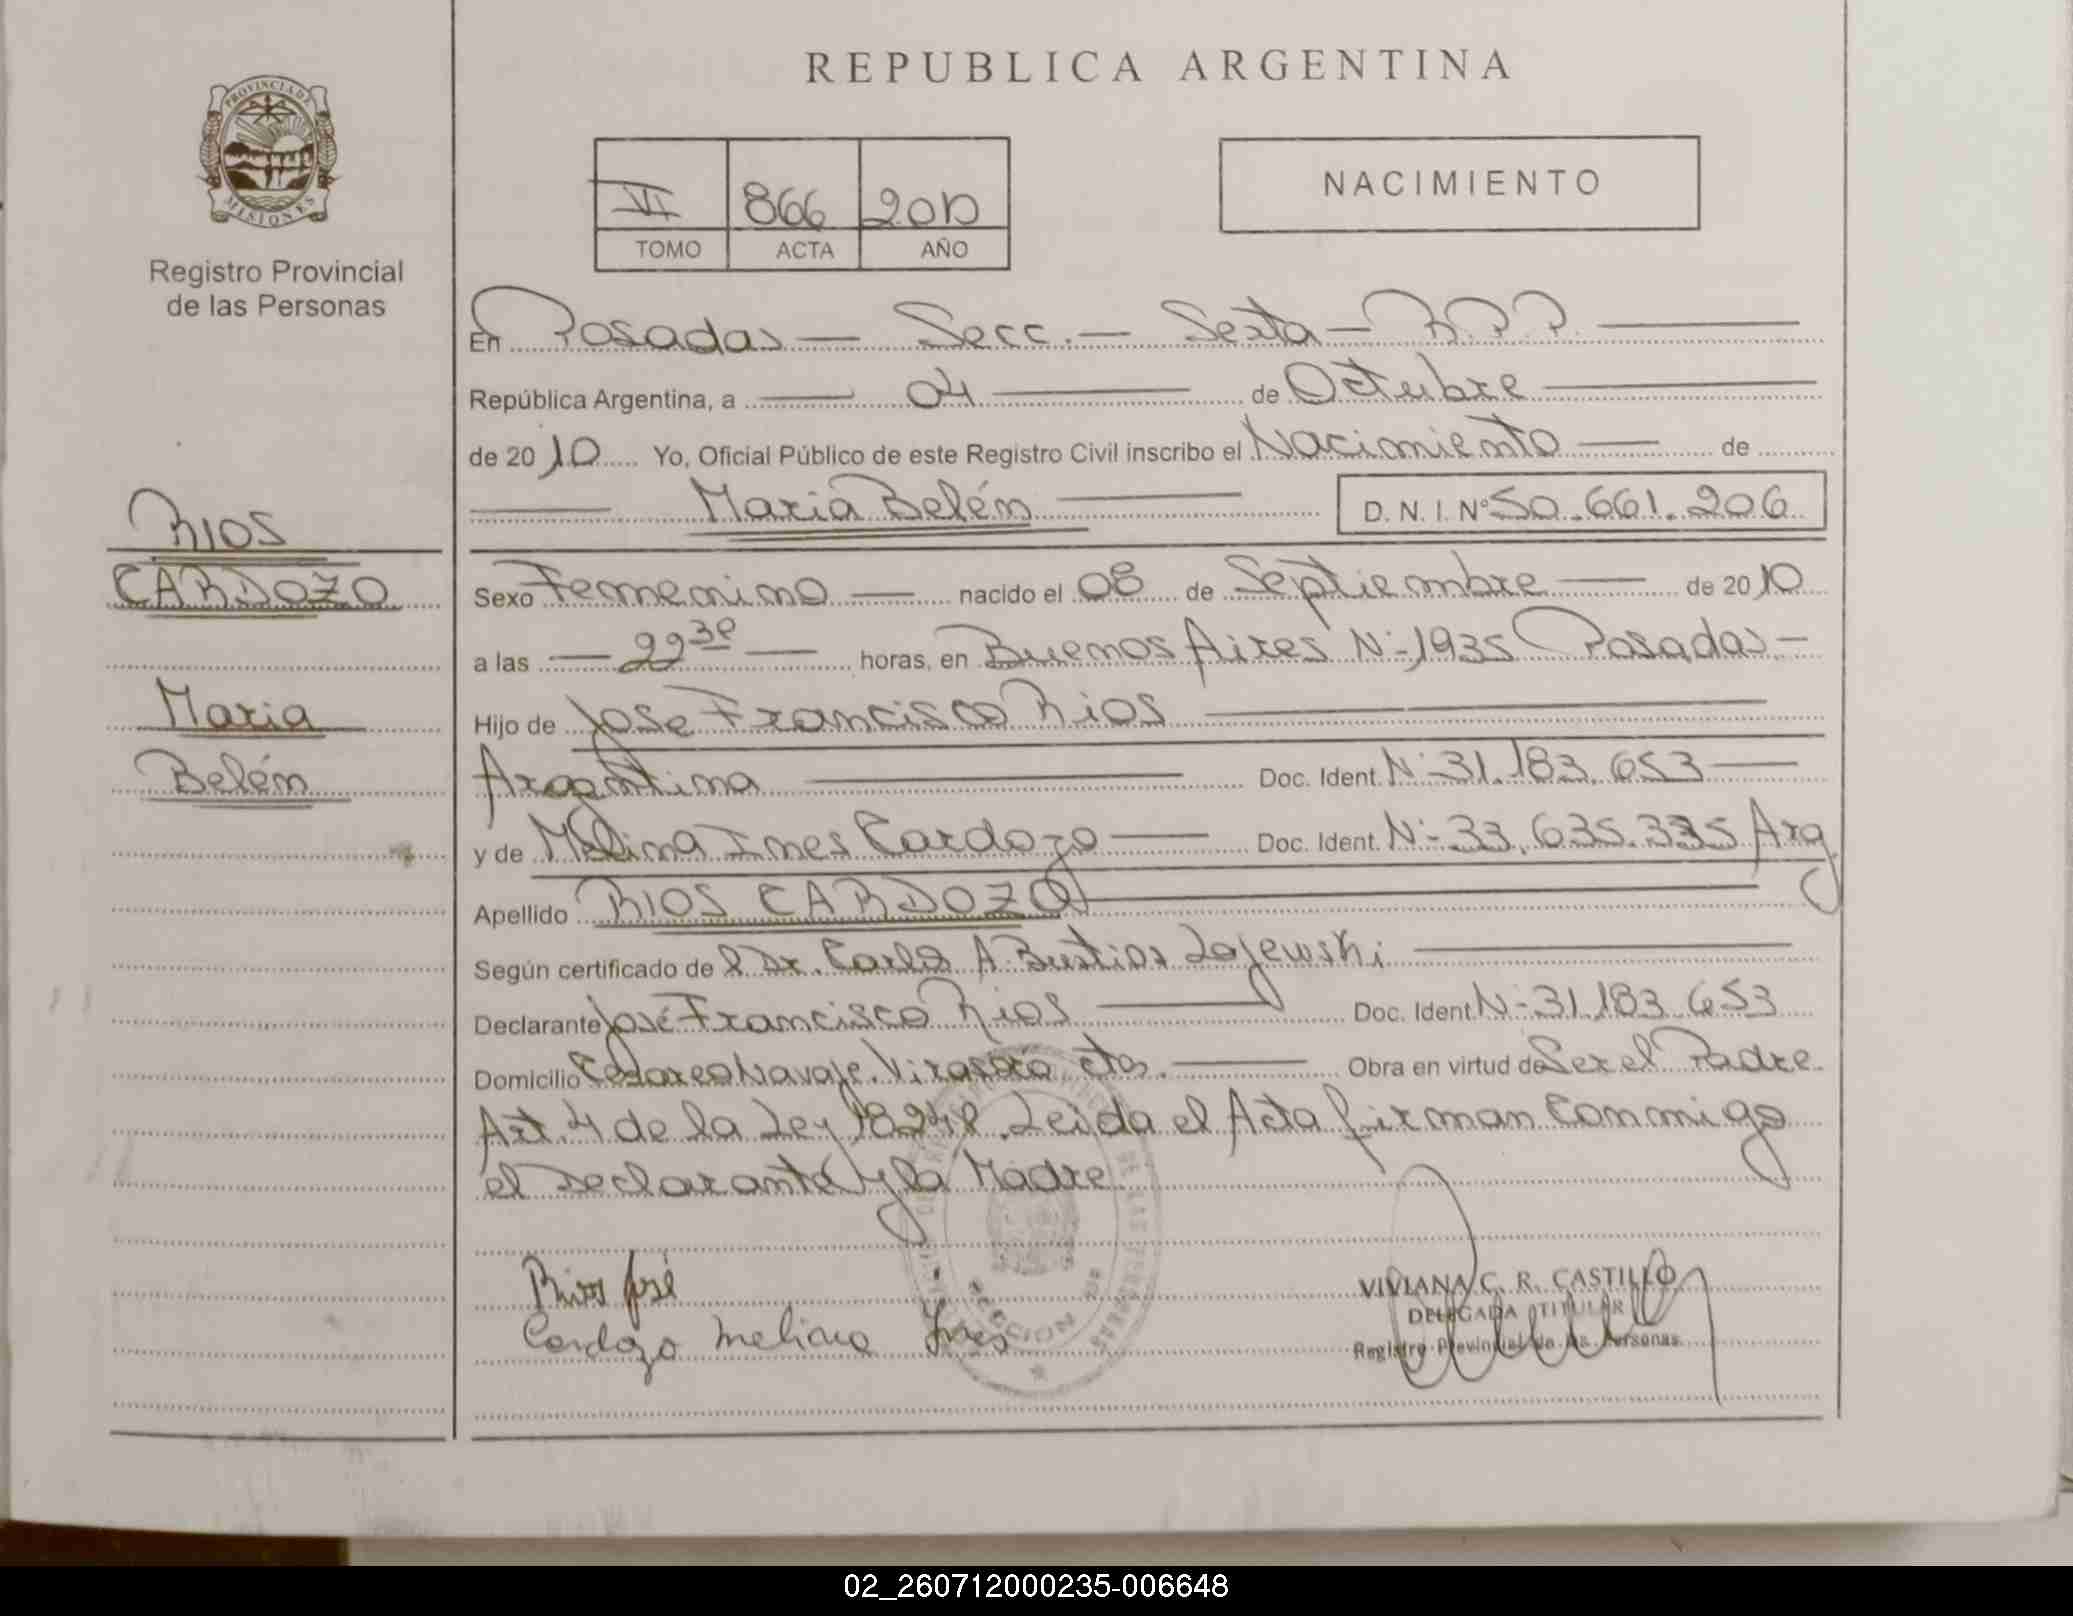 REPUBLICA ARGENTINA
PROVINCIA DE MISIONES
Registro Provincial
de las Personas
VI 866 2010
TOMO ACTA AÑO
NACIMIENTO
En Posadas — Secc. — Sexta — R.P.P.
República Argentina, a — 04 — de Octubre
de 2010 Yo, Oficial Público de este Registro Civil inscribo el Nacimiento — de
Maria Belén D. N. I. Nº 50.661.206
RIOS
CARDOZO
Maria
Belén
Sexo Femenino — nacido el 08 de Septiembre — de 2010
a las — 22 30 — horas, en Buenos Aires Nº 1935 Posadas —
Hijo de Jose Francisco Rios
Argentina Doc. Ident. Nº 31.183.653
y de Melina Ines Cardozo — Doc. Ident. Nº 33.635.335 Arg
Apellido RIOS CARDOZO
Según certificado de l Dr. Carlos A. Bustios Zajewski
Declarante José Francisco Rios — Doc. Ident. Nº 31.183.653
Domicilio Virasoro Ctes. — Obra en virtud de Ser el Padre
Art. 4 de la Ley 18248. Leida el Acta firman Conmigo
el Declarante y la Madre
Rios José
Cardozo Melina Ines
SECCION
VIVIANA C. R. CASTILLO
DELEGADA TITULAR
Registro Provincial de las Personas
02_260712000235-006648